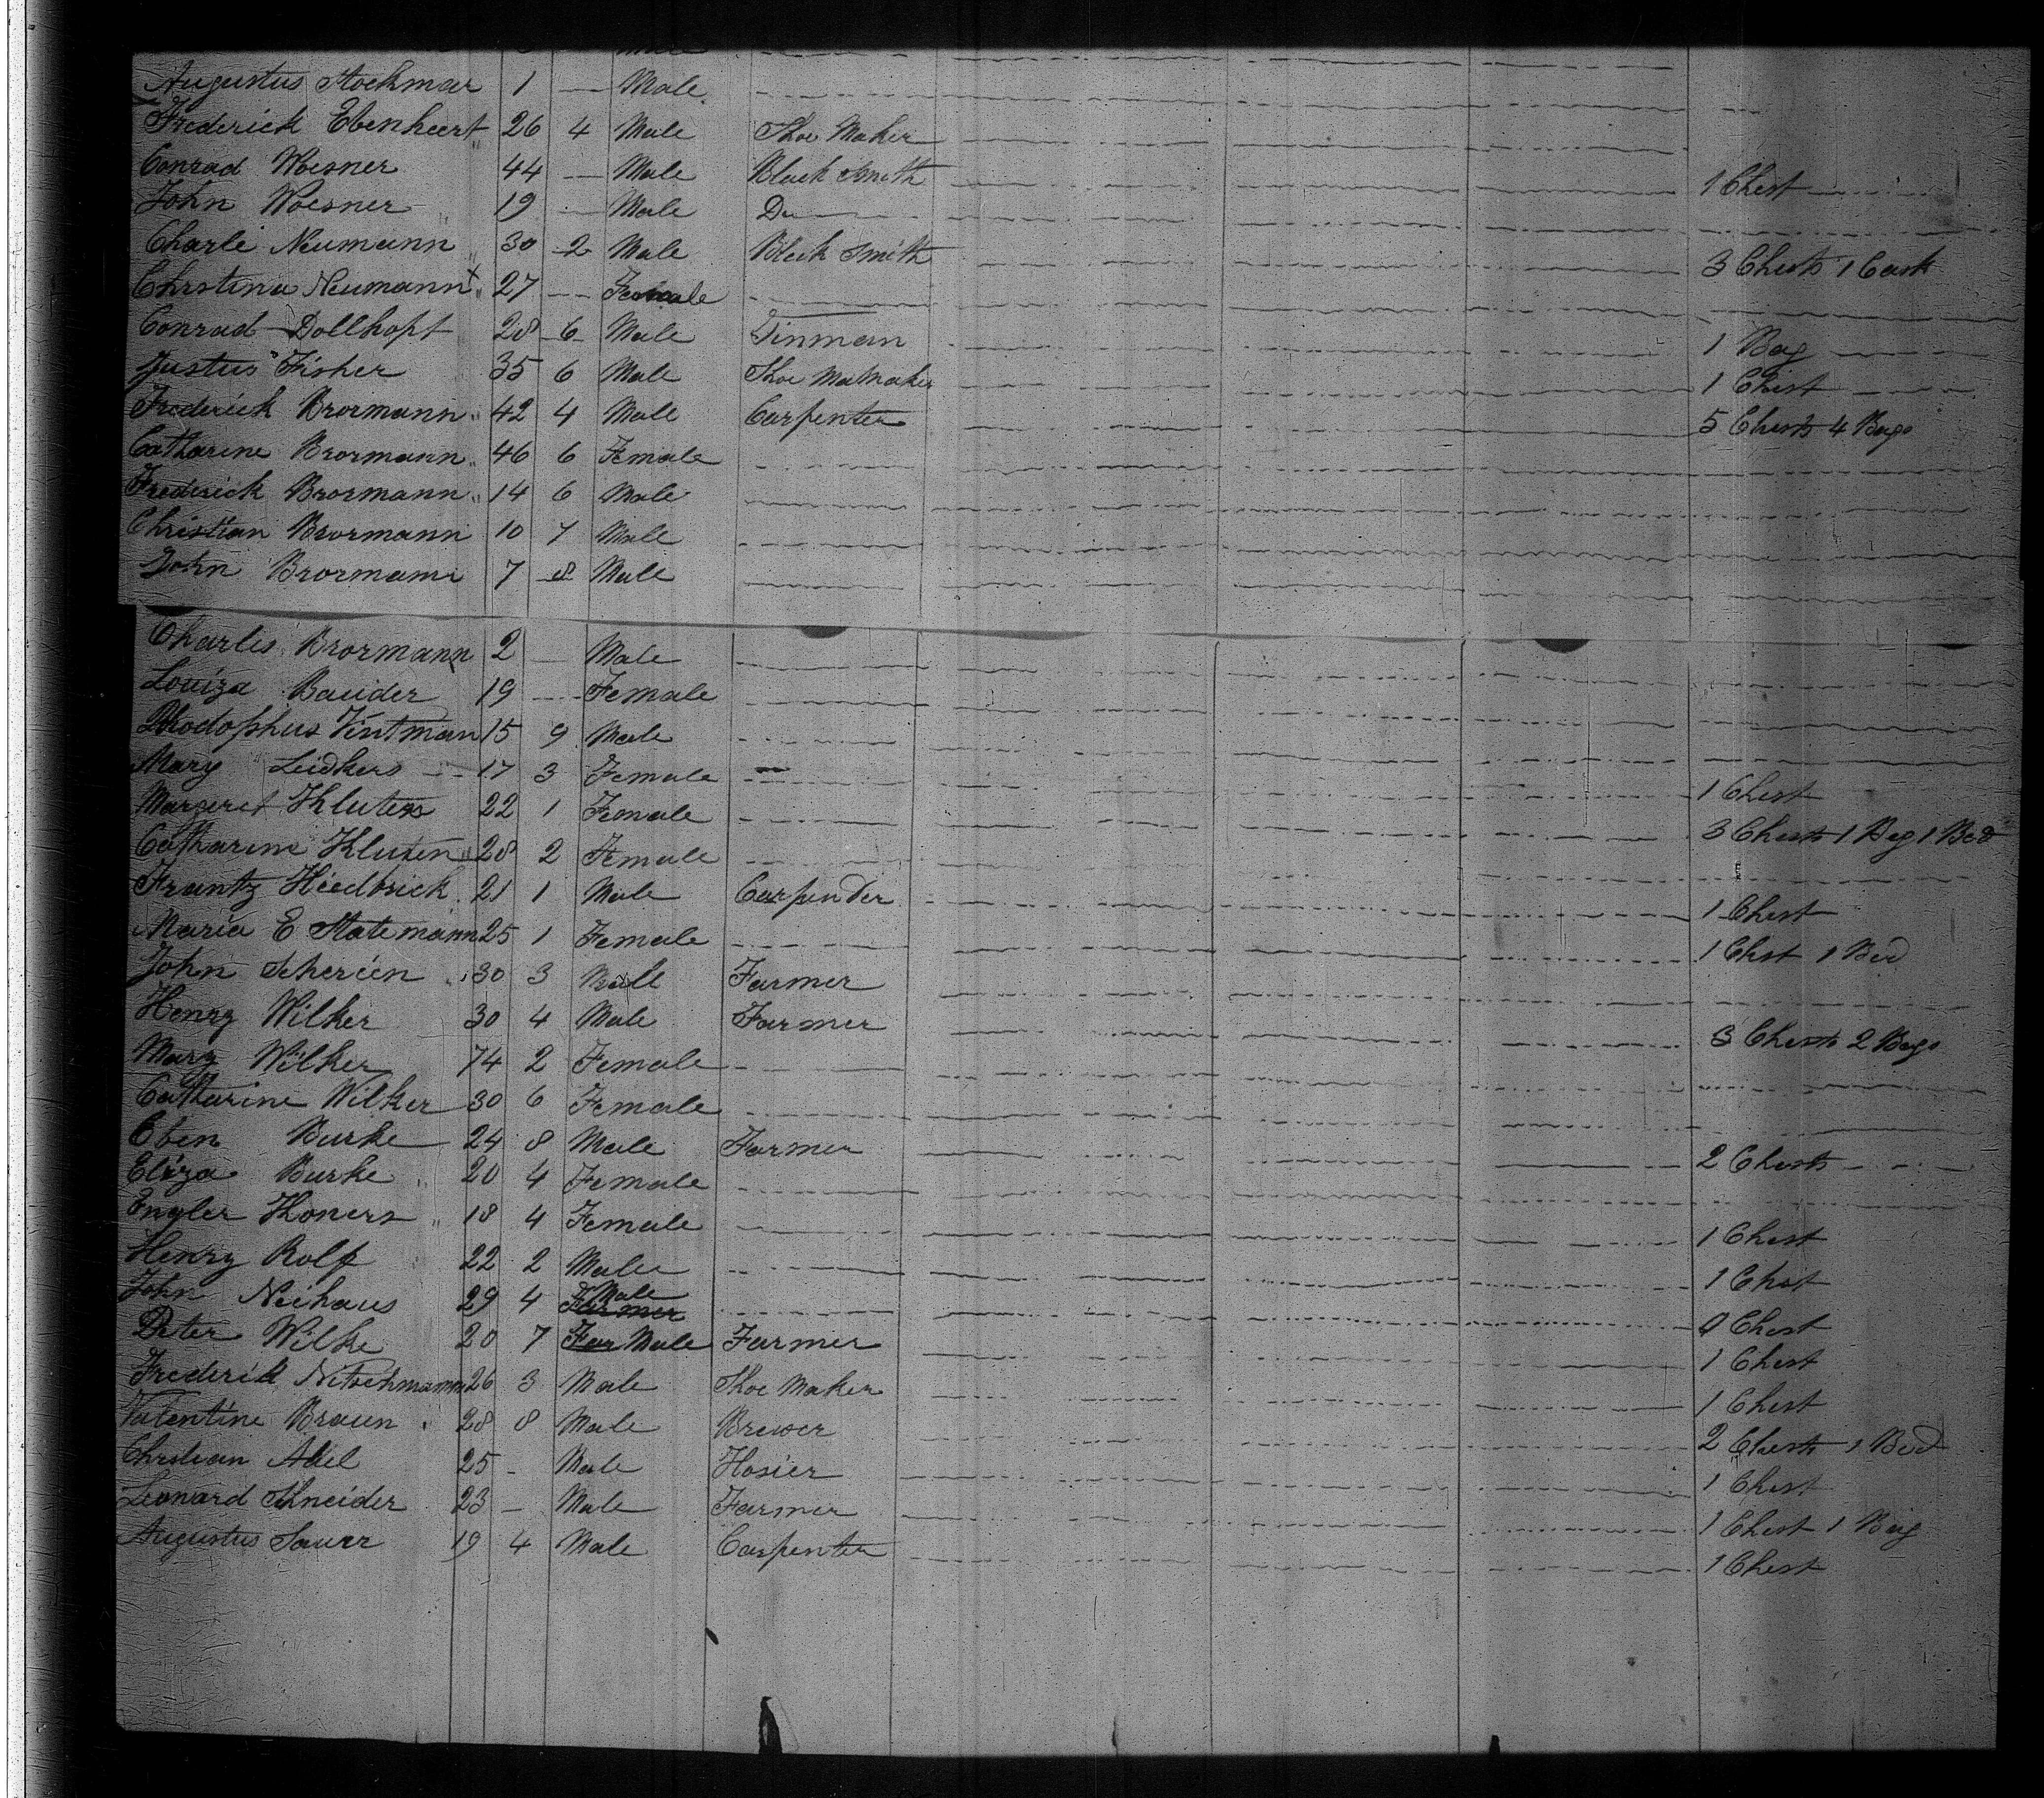 Augustus Stockmar 1 — Male
Frederick Ebenheert 26 4 Male Shoe Maker
Conrad Woesner 44 — Male Black Smith 1 Chest
John Woesner 19 — Male Do
Charle Neumann 30 2 Male Black Smith 3 Chests 1 Cask
Christina Neumann 27 — Female
Conrad Dollhopf 28 6 Male Tinman 1 Bag
Justus Fisher 35 6 Male Shoe 1 Chist
Frederick Brormann 42 4 Male Carpenter 5 Chests 4 Bags
Catharine Brormann 46 6 Female
Frederick Brormann 14 6 Male
Christian Brormann 10 7 Male
John Brormann 7 8 Male
Charles Brormann 2 — Male
Louiza Bauder 19 — Female
Rhodophus Vintman 15 9 Male
Mary Leidkers 17 3 Female 1 Chest
Margaret Kluten 22 1 Female 3 Chests 1 Bag 1 Bed
Catharine Kluten 28 2 Female
Frantz Hiedbrick 21 1 Male Carpender 1 Chest
Maria E Statemann 25 1 Female 1 Chst 1 Bed
John Scherien 30 3 Male Farmer
Henry Wilker 30 4 Male Farmer 3 Chests 2 Bags
Mary Wilker 74 2 Female
Catharine Wilker 30 6 Female
Eben Burke 24 8 Male Farmer 2 Chests
Eliza Burke 20 4 Female
Engler Honers 18 4 Female 1 Chest
Henry Rolf 22 2 Male 1 Chest
John Neihaus 29 4 Male Farmer Chest
Peter Wilke 20 7 Far Male Farmer 1 Chest
Frederick Nitschmann 26 3 Male Shoe Maker 1 Chest
Valentine Braun 28 8 Male Brewer 2 Chests 1 Bed
Christian Abel 25 - Male Hosier 1 Chest
Leonard Shneider 23 — Male Farmer 1 Chest 1 Bag
Augustus Saurr 19 4 Male Carpenter 1 Chest